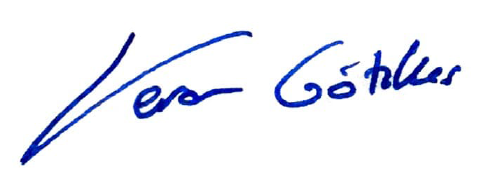 Vera Götzker